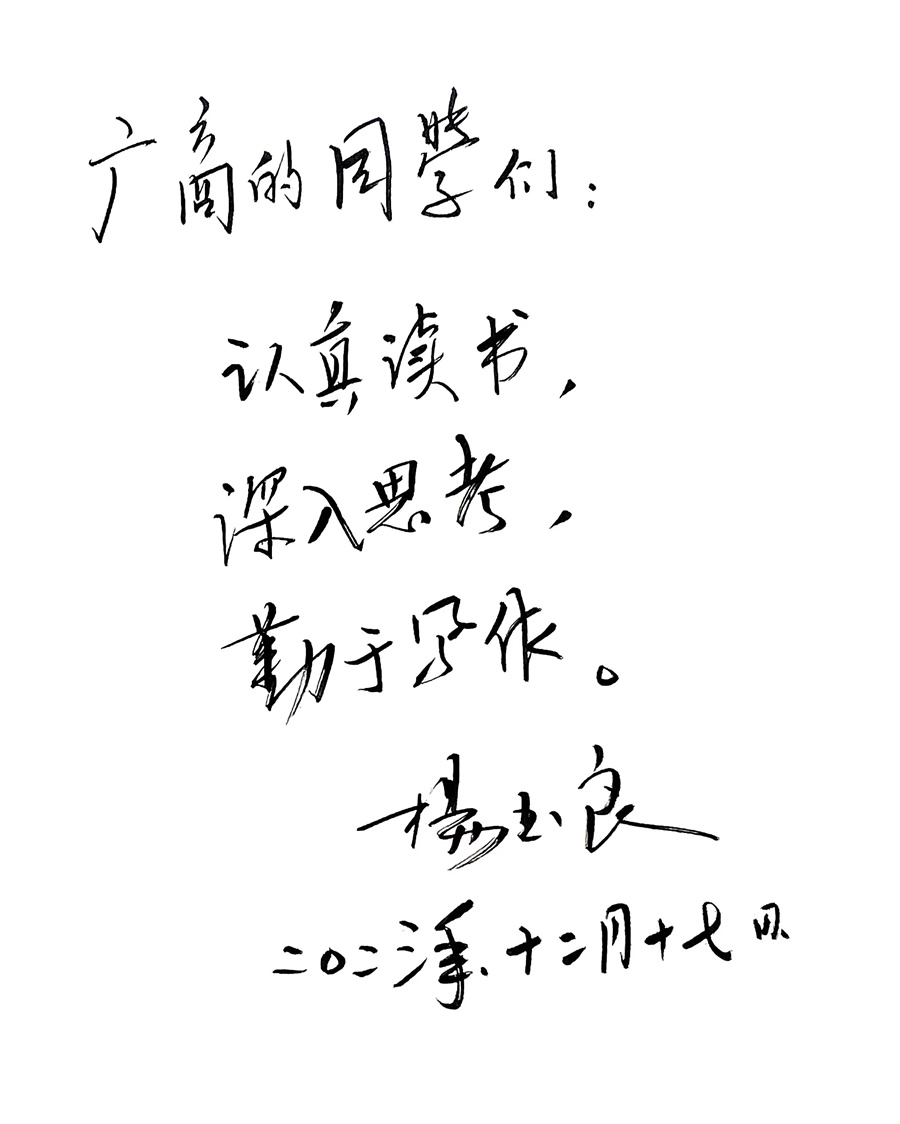 广商的同学们：
认真读书，
深入思考，
勤于写作。
楊玉良
二〇二三年、十二月十七日